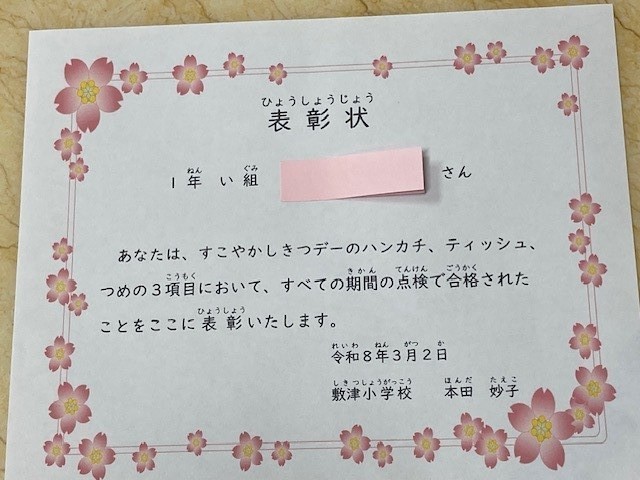 ひょうしょうじょう
表彰状
ねん ぐみ
1年 い組 さん
あなたは、すこやかしきつデーのハンカチ、ティッシュ、
こうもく きかん てんけん ごうかく
つめの3項目において、すべての期間の点検で合格された
ひょうしょう
ことをここに表彰いたします。
れいわ ねん がつ か
令和8年3月2日
しきつしょうがっこう ほんだ たえこ
敷津小学校 本田 妙子